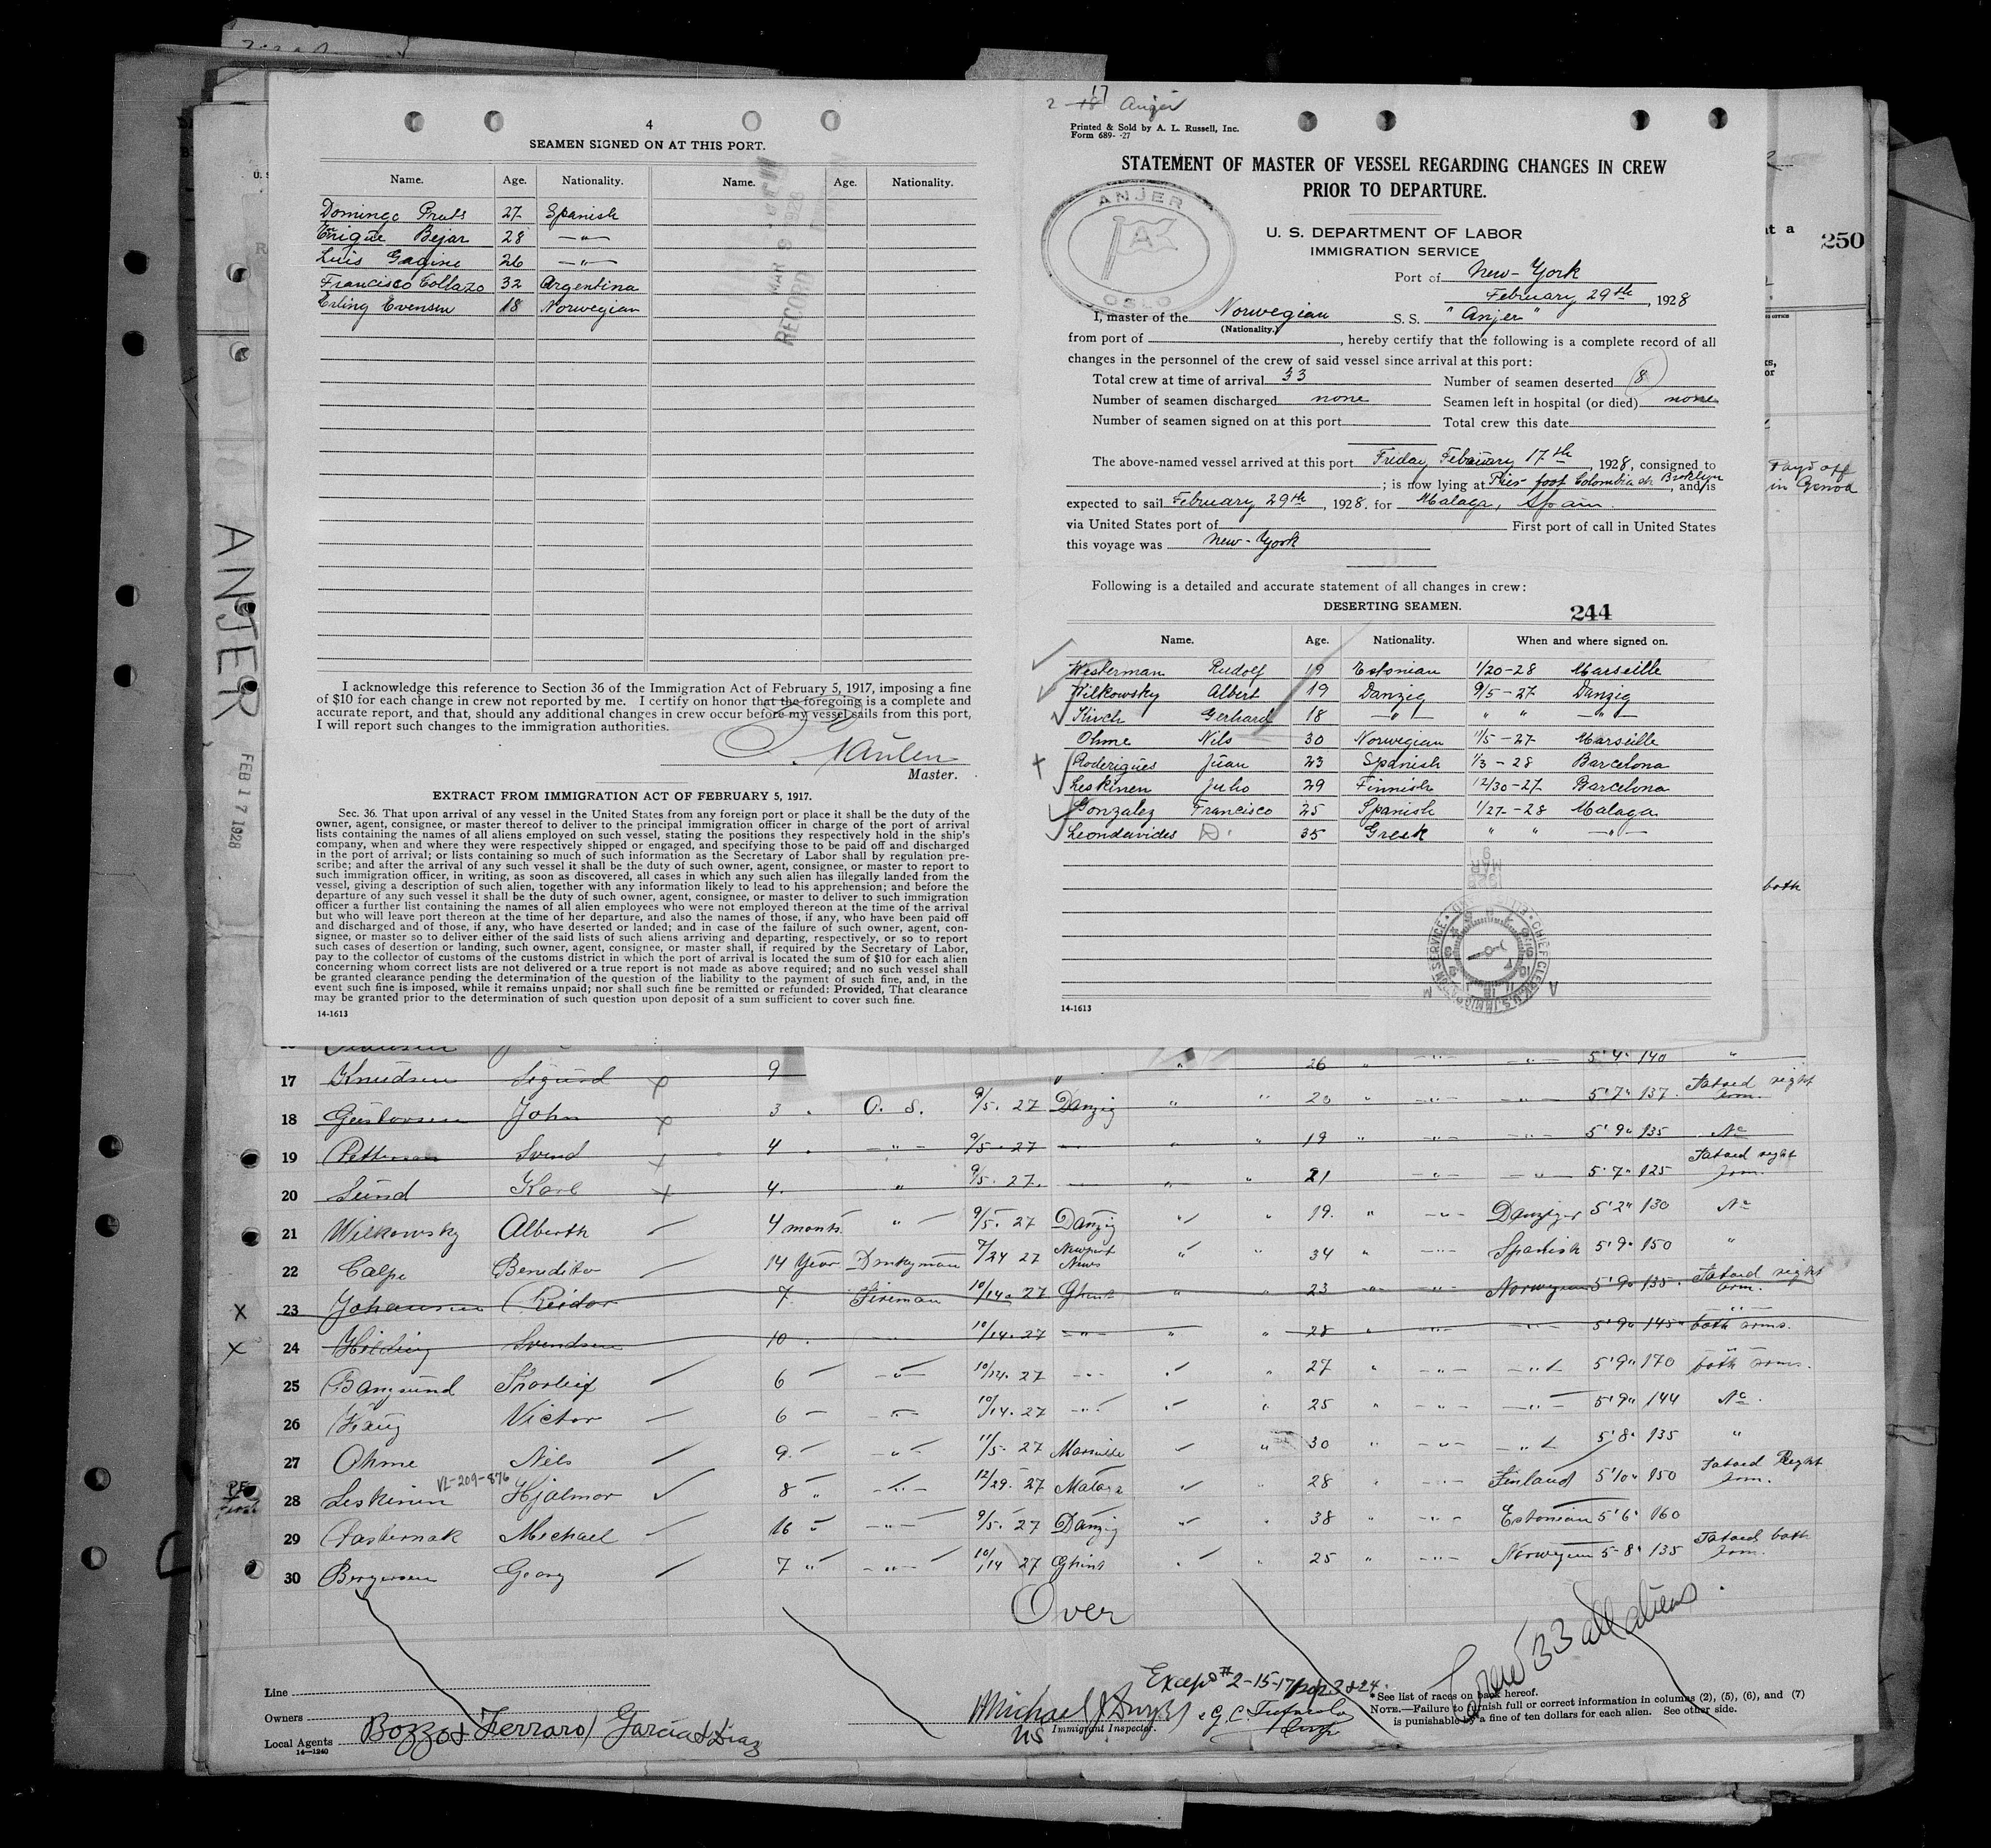 4
SEAMEN SIGNED ON AT THIS PORT.
Name. Age. Nationality. Name. Age. Nationality.
Domingo 27 Spanish
Enrique Bejar 28 —"—
Luis 26 —"—
Francisco Collazo 32 Argentina
Erling Evensen 18 Norwegian
MAR 9 1928
RECORD
I acknowledge this reference to Section 36 of the Immigration Act of February 5, 1917, imposing a fine
of $10 for each change in crew not reported by me. I certify on honor that the foregoing is a complete and
accurate report, and that, should any additional changes in crew occur before my vessel sails from this port,
I will report such changes to the immigration authorities.
Master.
EXTRACT FROM IMMIGRATION ACT OF FEBRUARY 5, 1917.
Sec. 36. That upon arrival of any vessel in the United States from any foreign port or place it shall be the duty of the
owner, agent, consignee, or master thereof to deliver to the principal immigration officer in charge of the port of arrival
lists containing the names of all aliens employed on such vessel, stating the positions they respectively hold in the ship's
company, when and where they were respectively shipped or engaged, and specifying those to be paid off and discharged
in the port of arrival; or lists containing so much of such information as the Secretary of Labor shall by regulation pre-
scribe; and after the arrival of any such vessel it shall be the duty of such owner, agent, consignee, or master to report to
such immigration officer, in writing, as soon as discovered, all cases in which any such alien has illegally landed from the
vessel, giving a description of such alien, together with any information likely to lead to his apprehension; and before the
departure of any such vessel it shall be the duty of such owner, agent, consignee, or master to deliver to such immigration
officer a further list containing the names of all alien employees who were not employed thereon at the time of the arrival
but who will leave port thereon at the time of her departure, and also the names of those, if any, who have been paid off
and discharged and of those, if any, who have deserted or landed; and in case of the failure of such owner, agent, con-
signee, or master so to deliver either of the said lists of such aliens arriving and departing, respectively, or so to report
such cases of desertion or landing, such owner, agent, consignee, or master shall, if required by the Secretary of Labor,
pay to the collector of customs of the customs district in which the port of arrival is located the sum of $10 for each alien
concerning whom correct lists are not delivered or a true report is not made as above required; and no such vessel shall
be granted clearance pending the determination of the question of the liability to the payment of such fine, and, in the
event such fine is imposed, while it remains unpaid; nor shall such fine be remitted or refunded: Provided, That clearance
may be granted prior to the determination of such question upon deposit of a sum sufficient to cover such fine.
14-1613
2 18 17 Anjer
Printed & Sold by A. L. Russell, Inc.
Form 689- -27
STATEMENT OF MASTER OF VESSEL REGARDING CHANGES IN CREW
PRIOR TO DEPARTURE.
ANJER
A
OSLO
U. S. DEPARTMENT OF LABOR
IMMIGRATION SERVICE
Port of New-York
February 29th, 1928
I, master of the Norwegian S. S. "Anjer"
(Nationality.)
from port of , hereby certify that the following is a complete record of all
changes in the personnel of the crew of said vessel since arrival at this port:
Total crew at time of arrival 33 Number of seamen deserted 8
Number of seamen discharged none Seamen left in hospital (or died) none
Number of seamen signed on at this port Total crew this date
The above-named vessel arrived at this port Friday February 17th, 1928, consigned to
; is now lying at Pier foot Colombia str Brooklyn, and is
expected to sail February 29th, 1928. for Malaga, Spain.
via United States port of First port of call in United States
this voyage was New-York
Following is a detailed and accurate statement of all changes in crew:
DESERTING SEAMEN. 244
Name. Age. Nationality. When and where signed on.
Westerman Rudolf 19 Estonian 1/20-28 Marseille
Wilkowsky Albert 19 Danzig 9/5-27 Danzig
Kirch Gerhard 18 —"— " " —"—
Ohme Nils 30 Norwegian 11/5-27 Marseille
Roderigues Juan 23 Spanish 1/3-28 Barcelona
Leskinen Juho 29 Finnish 12/30-27 Barcelona
Gonzalez Francisco 25 Spanish 1/27-28 Malaga
Leondarides D. 35 Greek " " —"—
14-1613
250
Payd off
in Genoa
both
ANJER
FEB 17 1928
26 5'4" 140 "
17 Knudsen Sigurd 9
18 Gustavsen John 3 O. S. 9/5. 27 Danzig " " 20 " 5'7" 137 Tatoed right arm.
19 Pettersen Svend 4 9/5-27 19 5'9" 135 No
20 Lund Karl 4. " 9/5. 27. 21 5'7" 125 Tatoed right arm.
21 Wilkowsky Alberth 4 months " 9/5. 27 Danzig 19. Danziger 5'2" 130 No
22 Calpe Benedito 14 Year Donkeyman 7/24 27 Newport News 34 Spanish 5'9" 150 "
23 Johansen Reidar 7 Fireman 10/14. 27 Ghent 23 Norwegian 5'9" 135. Tatoed right arm.
24 Hilding Svendsen 10 10/14. 27 28 5'9" 145 both arms.
25 Bangsund Thorleif 6 10/14. 27 27 5'9" 170 both arms.
26 Haug Victor 6 10/14. 27 25 5'9" 144 No.
27 Ohme Nils 9. 11/5. 27 Marseille 30 5'8" 135 "
28 Leskinen VL-209-876 Hjalmar 8 12/29. 27 Malaga 28 Finland 5'10" 150 Tatoed Right arm.
29 Pasternak Michael 16 9/5. 27 Danzig 38 Estonian 5'6" 160
30 Borgersen Georg 7 10/14 27 Ghent 25 Norwegian 5-8" 135 Tatoed both arm.
Over
Crew 33 all aliens
Line
Owners
Local Agents Bozzo & Ferraro / Garcia & Diaz
14—1240
Immigrant Inspector.
*See list of races on back hereof.
NOTE.—Failure to furnish full or correct information in columns (2), (5), (6), and (7)
is punishable by a fine of ten dollars for each alien. See other side.